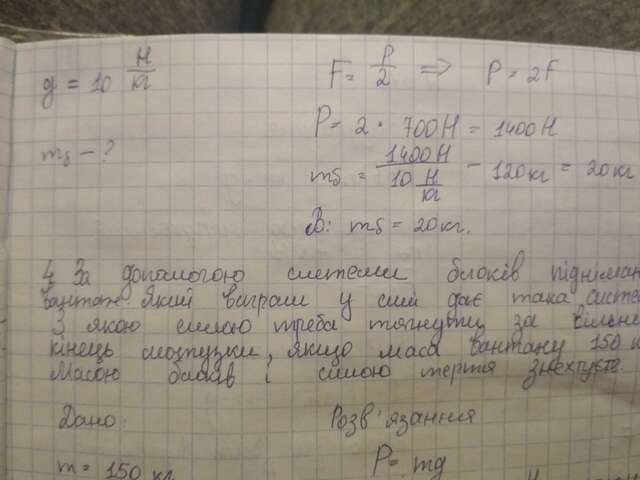 g = 10 Н/кг
F = P/2 => P = 2F
P = 2 · 700Н = 1400Н
mб - ?
mб = 1400Н / 10 Н/кг - 120кг = 20кг
В: mб = 20кг.
4. За допомогою системи блоків піднімаю
вантаж. Який виграш у силі дає така систе
З якою силою треба тягнути за вільни
кінець мотузки, якщо маса вантажу 150 к
Масою блоків і силою тертя знехтуєте.
Дано:
Розв'язання
m = 150 кг.
P = mg